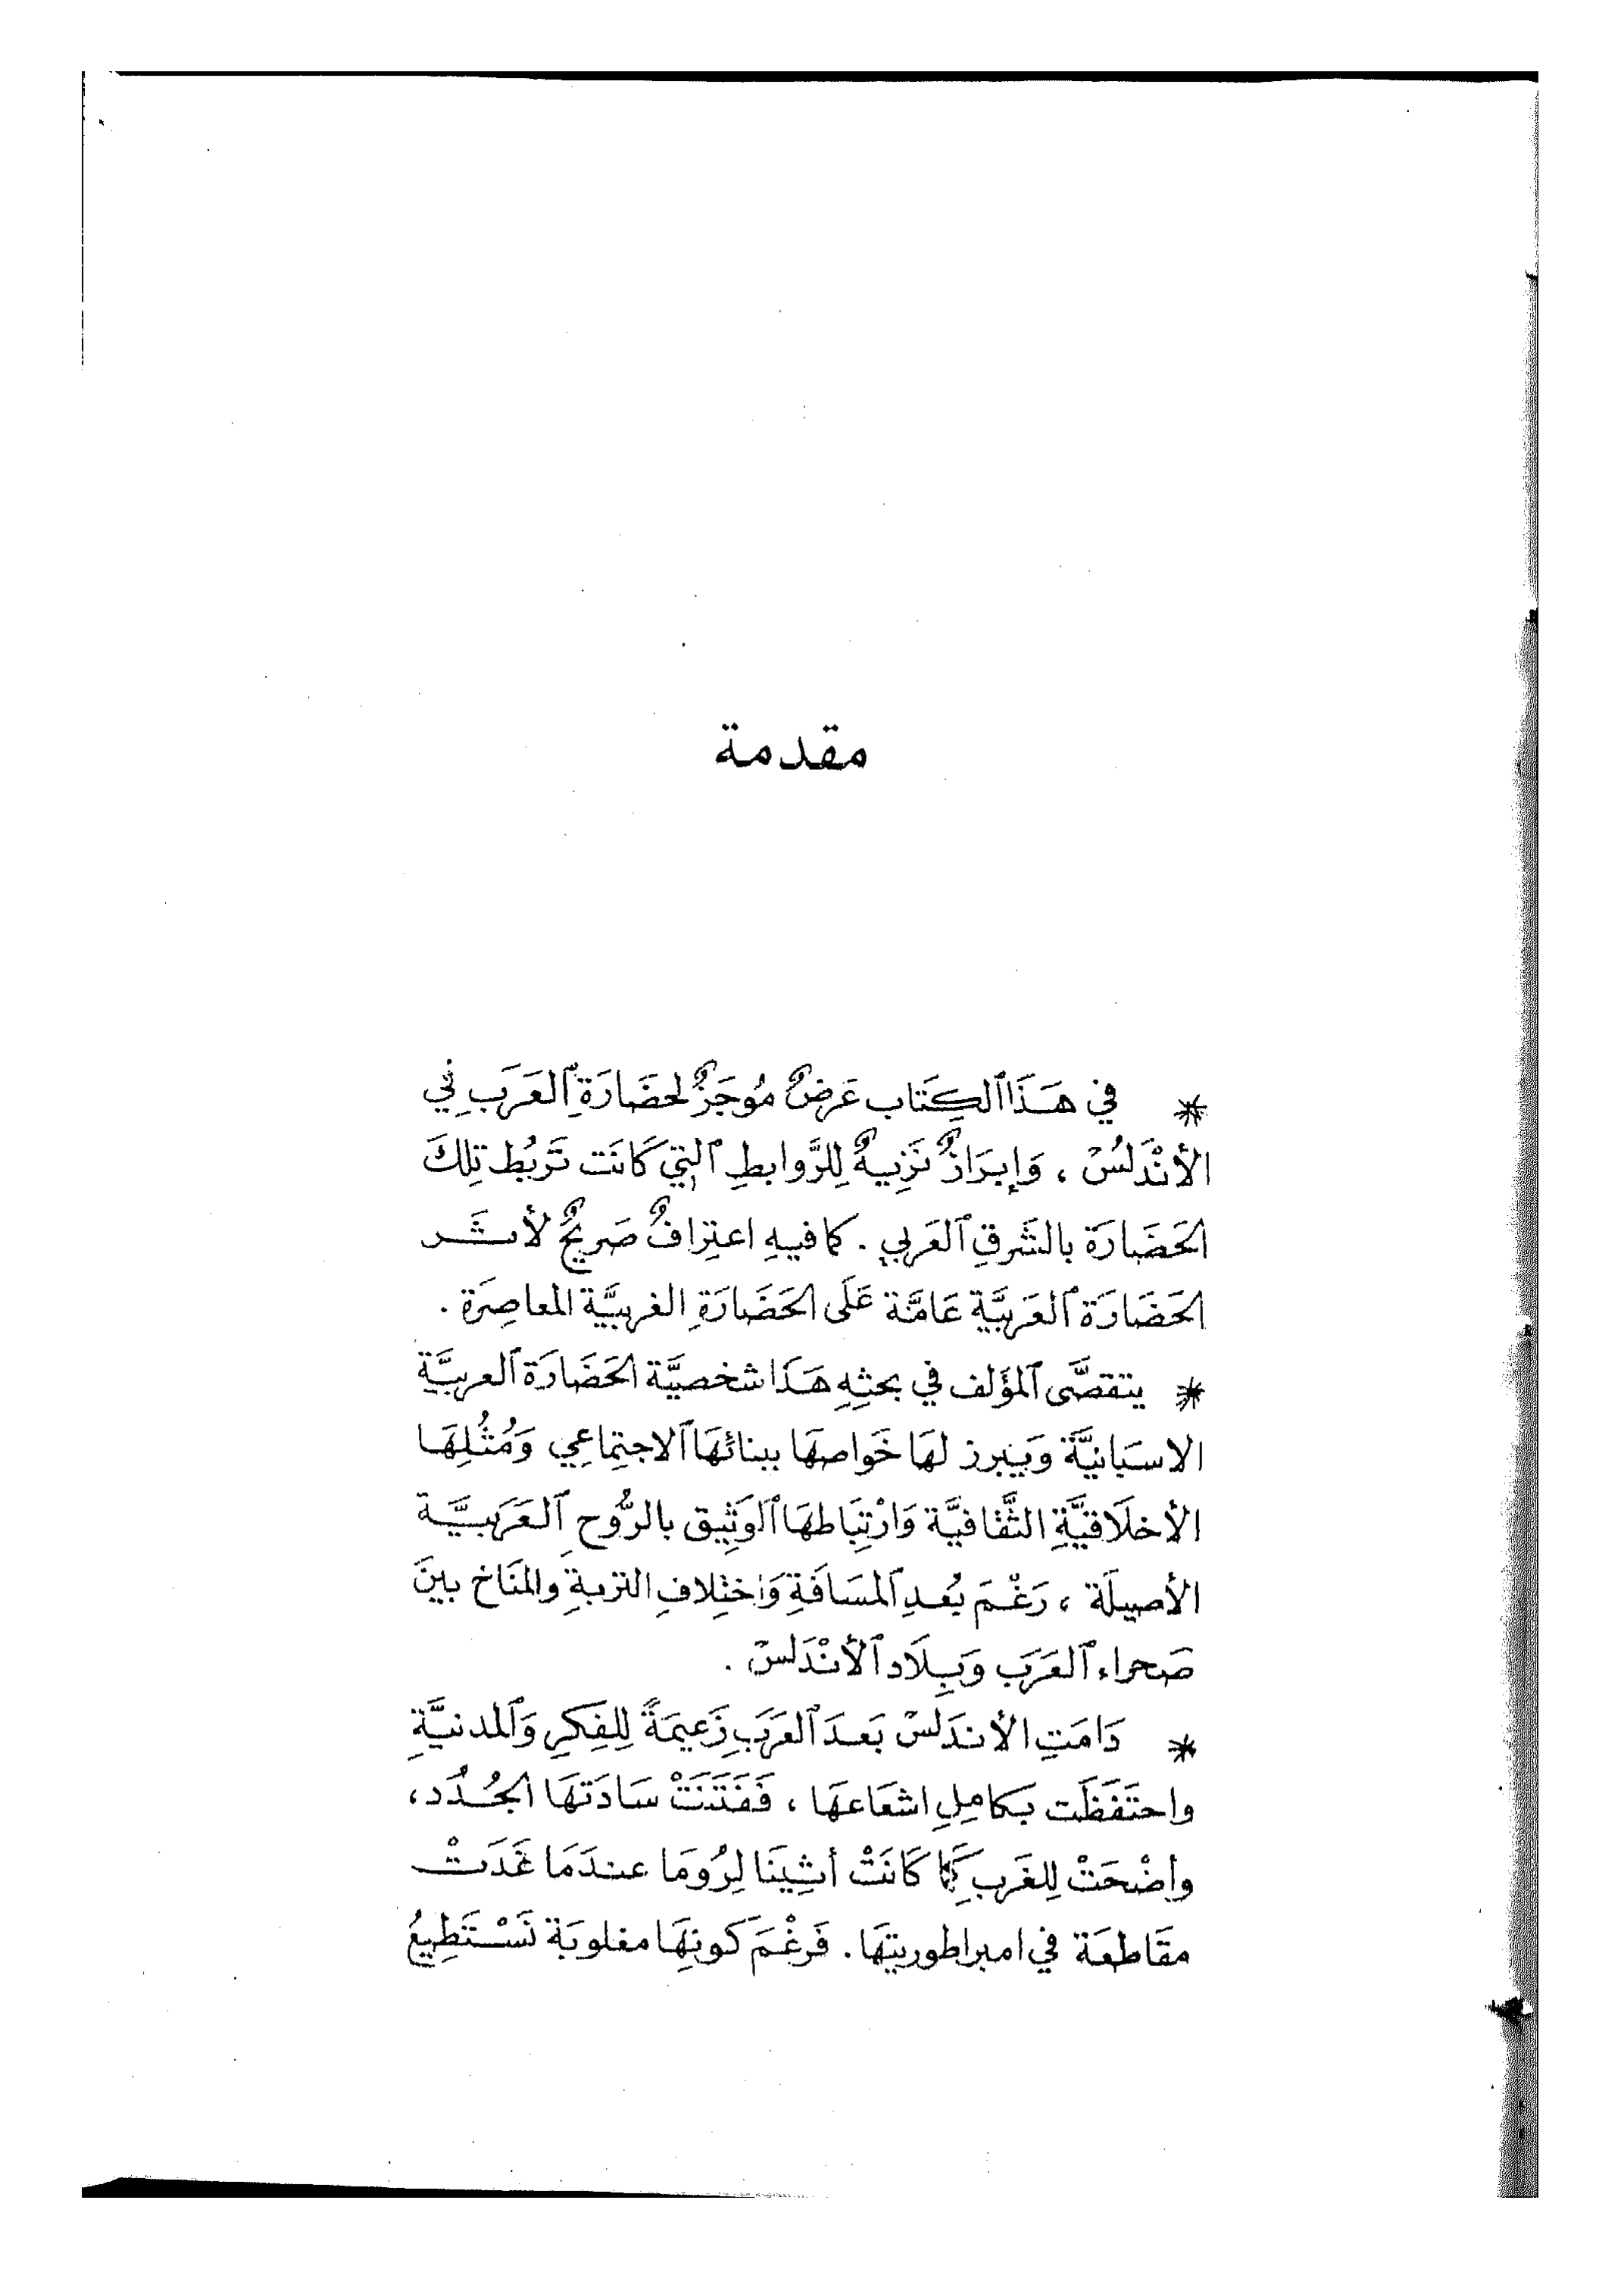 مقدمة
* في هَذَا ٱلكِتَاب عَرضٌ مُوجَزٌ لحضَارَةِ ٱلعَرَب فِي
الأنْدَلسُ ، وَإبرَازٌ نَزِيهٌ لِلرَّوابطِ ٱلتِي كَانَت تَربُط تِلكَ
الحَضَارَة بالشَرقِ ٱلعَربي . كما فيهِ اعتِرافٌ صَريحٌ لأثَر
الحَضَارَة ٱلعَربيَّة عَامَّة عَلَى الحَضَارَةِ الغربيَّة المعاصِرَة .
* يتقصَّى ٱلمؤَلف في بحثِهِ هَذا شخصيَّة الحَضَارَة ٱلعربيَّة
الاسبَانيَّة وَيبرز لهَا خَواصهَا ببنائهَا ٱلاجتِماعِي وَمُثُلِهَا
الأخلَاقيَّةِ الثَّقافيَّة وَارْتِبَاطهَا ٱلوَثِيق بالرُّوحِ ٱلعَرَبيَّة
الأصيلَة ، رَغْمَ بُعدِ ٱلمسَافَةِ وَاختِلافِ التربةِ والمنَاخ بينَ
صَحراء ٱلعَرَب وَبِلَاد ٱلأنْدَلسْ .
* دَامَتِ الأندَلسْ بَعدَ ٱلعَرَبِ زَعيمَةً لِلفِكرِ وَٱلمدنيَّةِ
واحتَفَظَت بكامِلِ اشعَاعهَا ، فَفَتَنَتْ سَادَتهَا الجُدُد،
وأضْحَتْ لِلغَربِ كَمَا كَانَتْ أثِينَا لِرُومَا عندَمَا غَدَتْ
مقَاطعَة في امبراطوريتهَا. فَرغْمَ كَونِهَا مغلوبَة تَسْتَطِيعُ